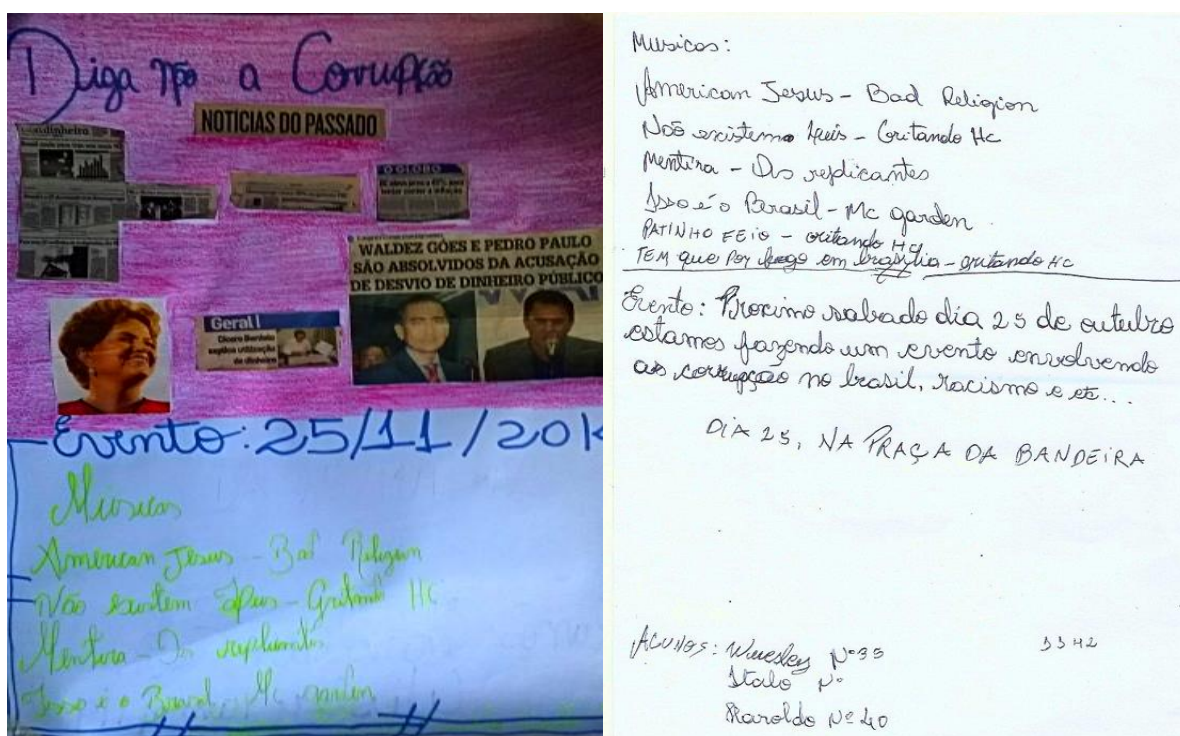 Diga não a Corrupção
NOTÍCIAS DO PASSADO
dinheiro
O GLOBO
WALDEZ GÓES E PEDRO PAULO
SÃO ABSOLVIDOS DA ACUSAÇÃO
DE DESVIO DE DINHEIRO PÚBLICO
Geral
Cícero Bordalo
explica utilização
de dinheiro
Evento: 25/11/201
Músicas
American Jesus - Bad Religion
Não existem - Gritando HC
Mentira - Os replicantes
Isso é o Brasil Mc garden
Musicas:
American Jesus - Bad Religion
Não - Gritando Hc
Mentira - Os replicantes
Isso é o Brasil - Mc garden
PATINHO FEIO - Gritando HC
TEM que Por fogo em brasília - gritando HC
Evento: Proximo sabado dia 25 de outubro
estamos fazendo um evento envolvendo
as corrupção no brasil, racismo e etc...
DIA 25, NA PRAÇA DA BANDEIRA
Alunos: Nº 35
Italo Nº
Haroldo Nº 40
3342